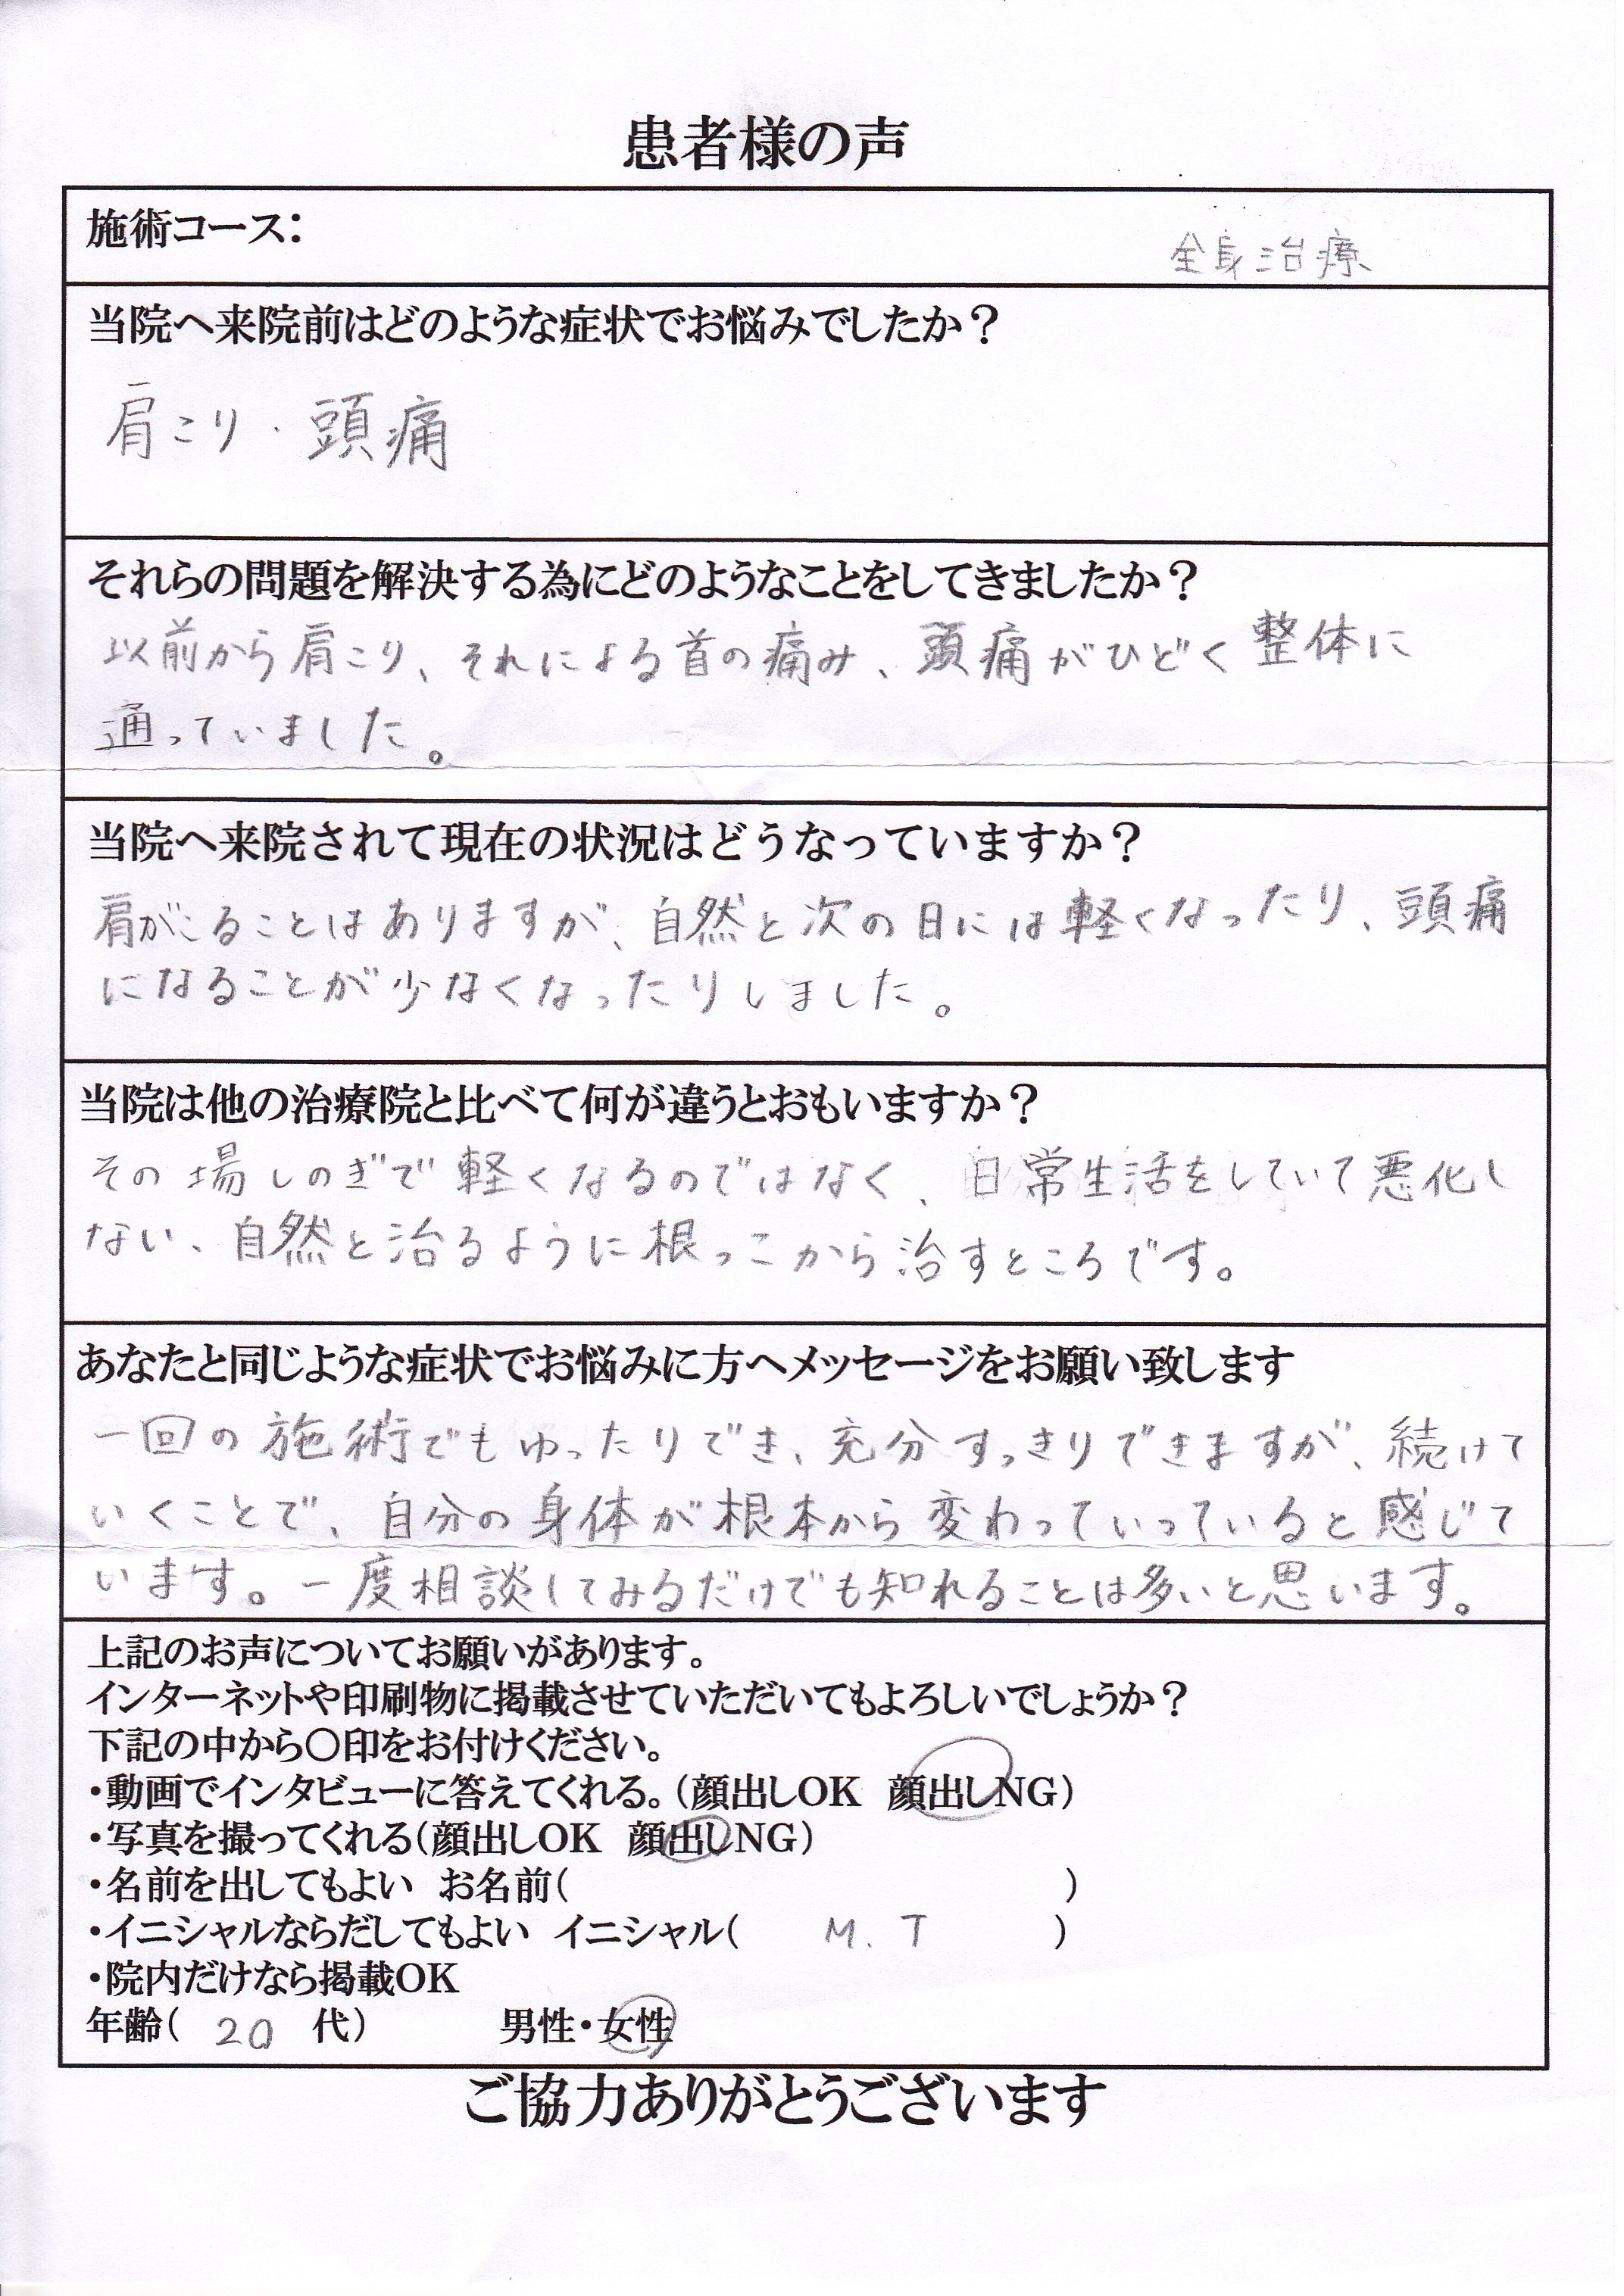 患者様の声
施術コース：
全身治療
当院へ来院前はどのような症状でお悩みでしたか？
肩こり・頭痛
それらの問題を解決する為にどのようなことをしてきましたか？
以前から肩こり、それによる首の痛み、頭痛がひどく整体に
通っていました。
当院へ来院されて現在の状況はどうなっていますか？
肩がこることはありますが、自然と次の日には軽くなったり、頭痛
になることが少なくなったりしました。
当院は他の治療院と比べて何が違うとおもいますか？
その場しのぎで軽くなるのではなく、日常生活をしていて悪化し
ない、自然と治るように根っこから治すところです。
あなたと同じような症状でお悩みに方へメッセージをお願い致します
一回の施術でもゆったりでき、充分すっきりできますが、続けて
いくことで、自分の身体が根本から変わっていっていると感じて
います。一度相談してみるだけでも知れることは多いと思います。
上記のお声についてお願いがあります。
インターネットや印刷物に掲載させていただいてもよろしいでしょうか？
下記の中から〇印をお付けください。
・動画でインタビューに答えてくれる。（顔出しOK　顔出しNG）
・写真を撮ってくれる（顔出しOK　顔出しNG）
・名前を出してもよい　お名前（　　　）
・イニシャルならだしてもよい　イニシャル（　M. T　）
・院内だけなら掲載OK
年齢（　20　代）　男性・女性
ご協力ありがとうございます